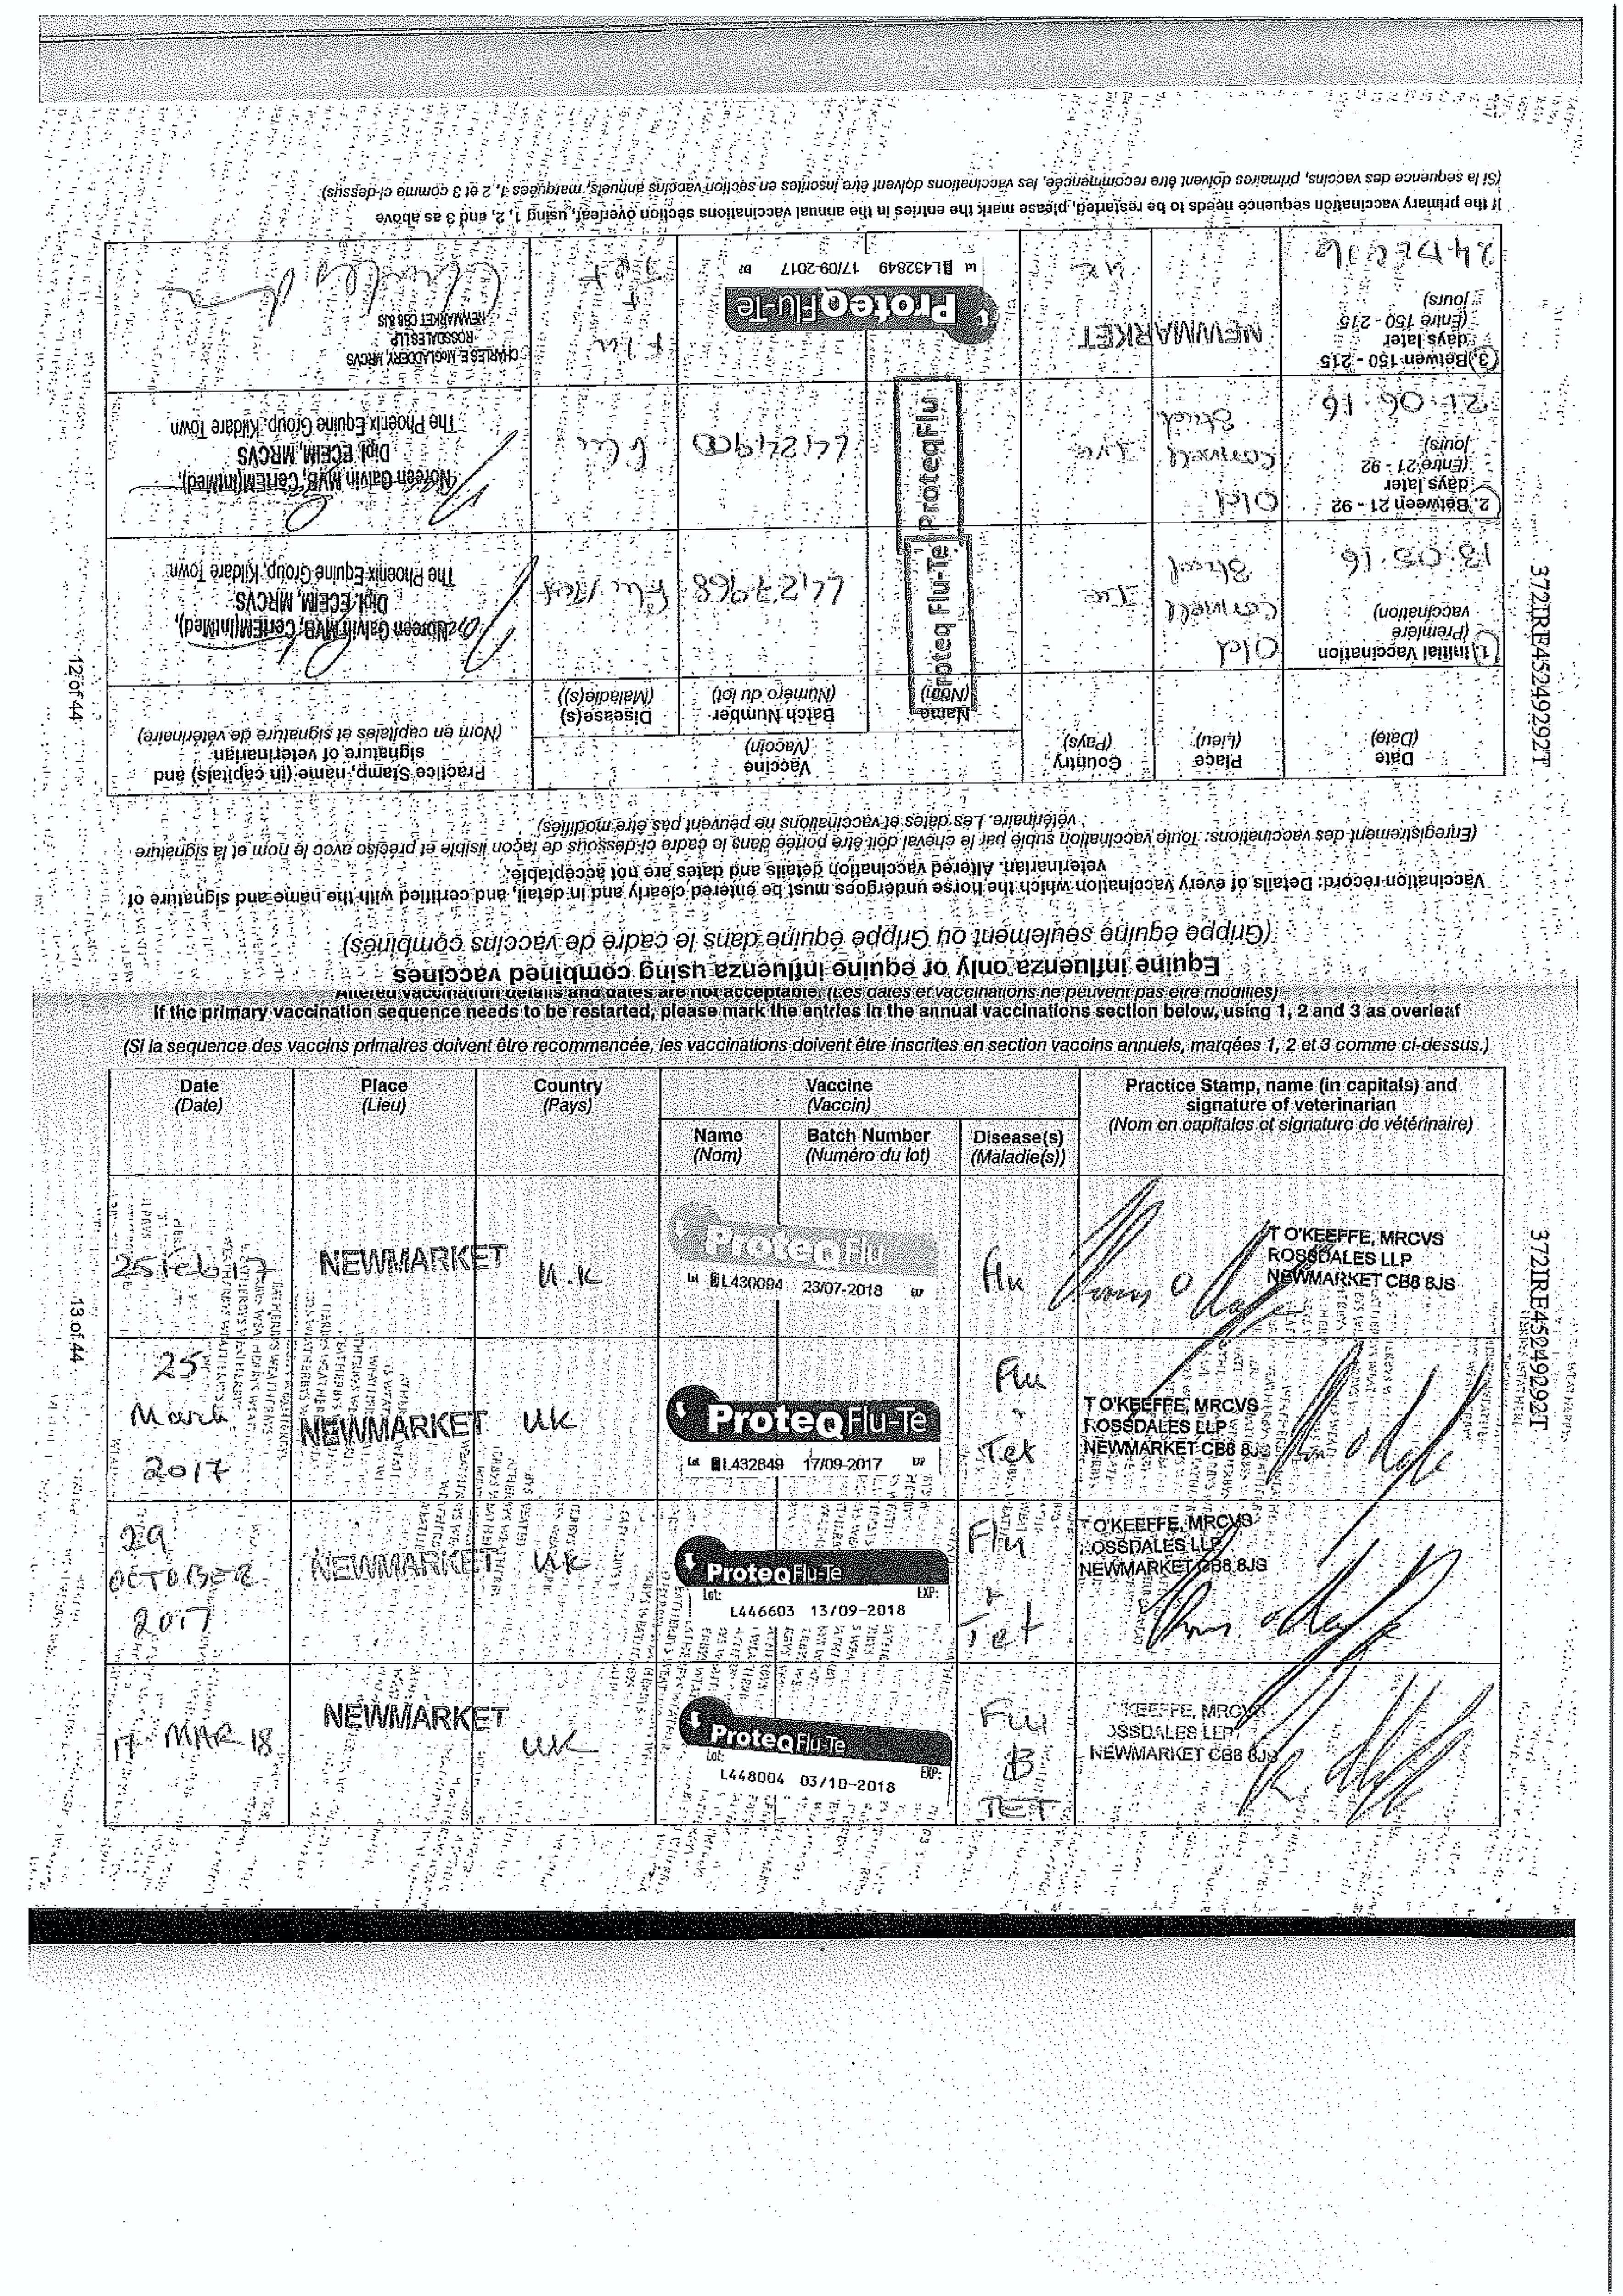 Equine influenza only or equine influenza using combined vaccines
(Grippe équine seulement ou Grippe équine dans le cadre de vaccins combinés)
Vaccination record: Details of every vaccination which the horse undergoes must be entered clearly and in detail, and certified with the name and signature of
veterinarian. Altered vaccination details and dates are not acceptable.
(Enregistrement des vaccinations: Toute vaccination subie par le cheval doit être portée dans le cadre ci-dessous de façon lisible et précise avec le nom et la signature
vétérinaire. Les dates et vaccinations ne peuvent pas être modifiés)
Date
(Date)
Place
(Lieu)
Country
(Pays)
Vaccine
(Vaccin)
Name
(Nom)
Batch Number
(Numéro du lot)
Disease(s)
(Maladie(s))
Practice Stamp, name (in capitals) and
signature of veterinarian
(Nom en capitales et signature de vétérinaire)
1. Initial Vaccination
(Première
vaccination)
13.05.16
Old
Conwell
Stud
Ire
Proteq Flu-Te
L427968
Flu/Tet
Noreen Galvin MVB, CertEM(IntMed),
Dipl. ECEIM, MRCVS
The Phoenix Equine Group, Kildare Town
2. Between 21 - 92
days later
(Entre 21 - 92
jours)
21.06.16
Old
Conwell
Stud
Ire
ProteqFlu
Flu
Noreen Galvin MVB, CertEM(IntMed),
Dipl. ECEIM, MRCVS
The Phoenix Equine Group, Kildare Town
3. Betwen 150 - 215
days later
(Entre 150 - 215
jours)
24 DEC 16
NEWMARKET
UK
ProteqFlu-Te
Lot L432849 17/09-2017 EXP
Flu
+
Tet
CHARLES E McGLADDERY, MRCVS
ROSSDALES LLP
NEWMARKET CB8 8JS
If the primary vaccination sequence needs to be restarted, please mark the entries in the annual vaccinations section overleaf, using 1, 2, and 3 as above
(Si la sequence des vaccins, primaires doivent être recommencée, les vaccinations doivent être inscrites en section vaccins annuels, marquées 1, 2 et 3 comme ci-dessus)
12 of 44
372IRE45249292T
Altered vaccination details and dates are not acceptable. (Les dates et vaccinations ne peuvent pas être modifiés)
If the primary vaccination sequence needs to be restarted, please mark the entries in the annual vaccinations section below, using 1, 2 and 3 as overleaf
(Si la sequence des vaccins primaires doivent être recommencée, les vaccinations doivent être inscrites en section vaccins annuels, marqées 1, 2 et 3 comme ci-dessus.)
Date
(Date)
Place
(Lieu)
Country
(Pays)
Vaccine
(Vaccin)
Name
(Nom)
Batch Number
(Numéro du lot)
Disease(s)
(Maladie(s))
Practice Stamp, name (in capitals) and
signature of veterinarian
(Nom en capitales et signature de vétérinaire)
25 Feb 17
NEWMARKET
U.K
ProteqFlu
Lot L430094 23/07-2018 EXP
Flu
T O'KEEFFE, MRCVS
ROSSDALES LLP
NEWMARKET CB8 8JS
25
March
2017
NEWMARKET
UK
ProteqFlu-Te
Lot L432849 17/09-2017 EXP
Flu
+
Tet
T O'KEEFFE, MRCVS
ROSSDALES LLP
NEWMARKET CB8 8JS
29
OCTOBER
2017
NEWMARKET
UK
ProteqFlu-Te
Lot: EXP:
L446603 13/09-2018
Flu
+
Tet
T O'KEEFFE, MRCVS
OSSDALES LLP
NEWMARKET CB8 8JS
17 MAR 18
NEWMARKET
UK
ProteqFlu-Te
Lot: EXP:
L448004 03/10-2018
Flu
&
TET
KEEFFE, MRCVS
OSSDALES LLP
NEWMARKET CB8 8JS
13 of 44
372IRE45249292T